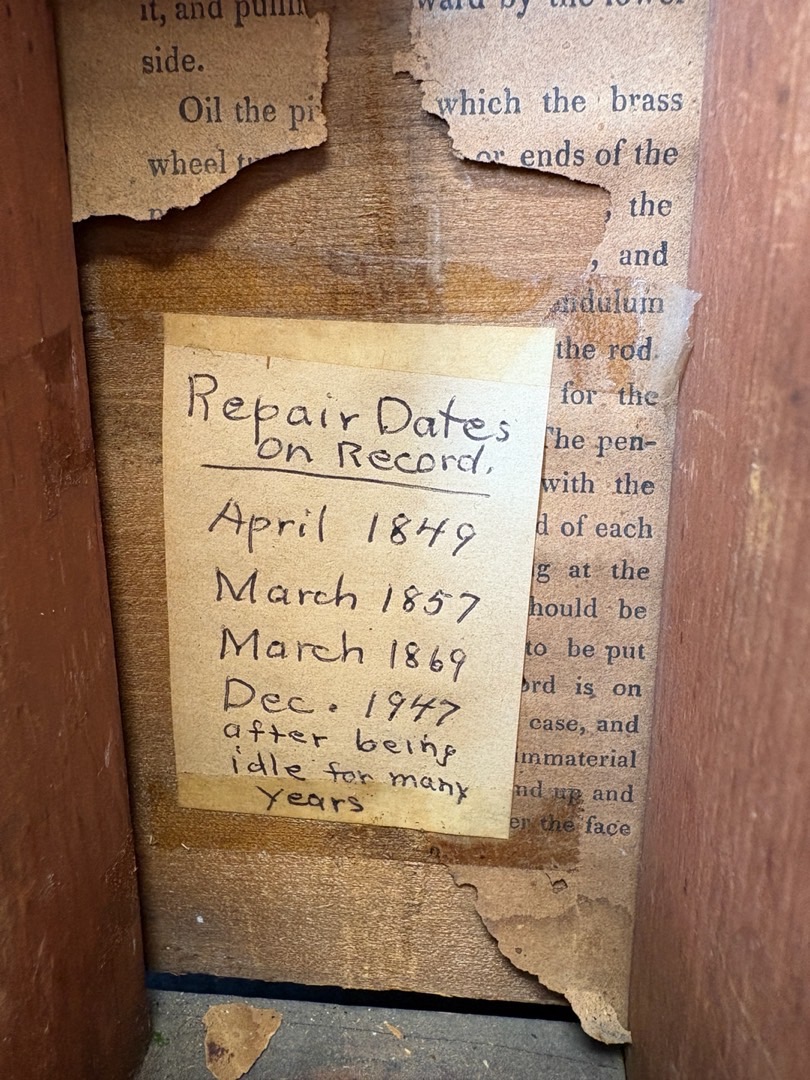 it, and
ward by the lower
side.
Oil the
which the brass
wheel
or ends of the
, the
, and
the rod.
for the
The pen-
with the
of each
at the
be
to be put
is on
case, and
immaterial
up and
the face
Repair Dates
on Record.
April 1849
March 1857
March 1869
Dec. 1947
after being
idle for many
years